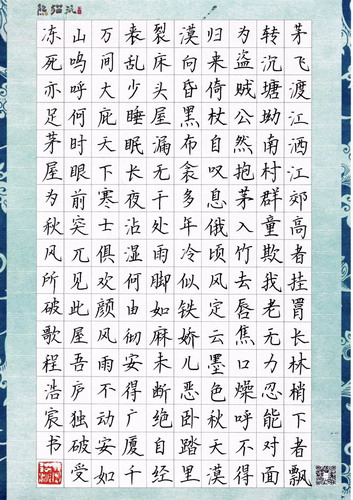 茅飞渡江洒江郊高者挂罥长林梢下者飘
转沉塘坳南村群童欺我老无力忍能对面
为盗贼公然抱茅入竹去唇焦口燥呼不得
归来倚杖自叹息俄顷风定云墨色秋天漠
漠向昏黑布衾多年冷似铁娇儿恶卧踏里
裂床头屋漏无干处雨脚如麻未断绝自经
丧乱少睡眠长夜沾湿何由彻安得广厦千
万间大庇天下寒士俱欢颜风雨不动安如
山呜呼何时眼前突兀见此屋吾庐独破受
冻死亦足茅屋为秋风所破歌程浩宸书
熊猫